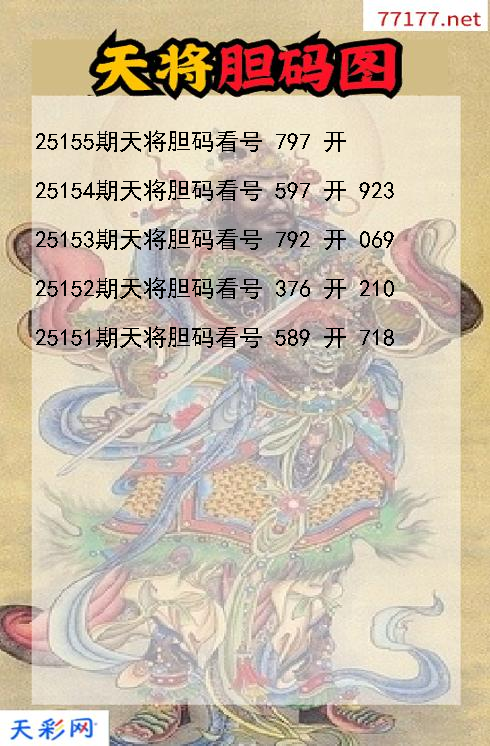 77177.net
天将胆码图
25155期天将胆码看号 797 开
25154期天将胆码看号 597 开 923
25153期天将胆码看号 792 开 069
25152期天将胆码看号 376 开 210
25151期天将胆码看号 589 开 718
天彩网